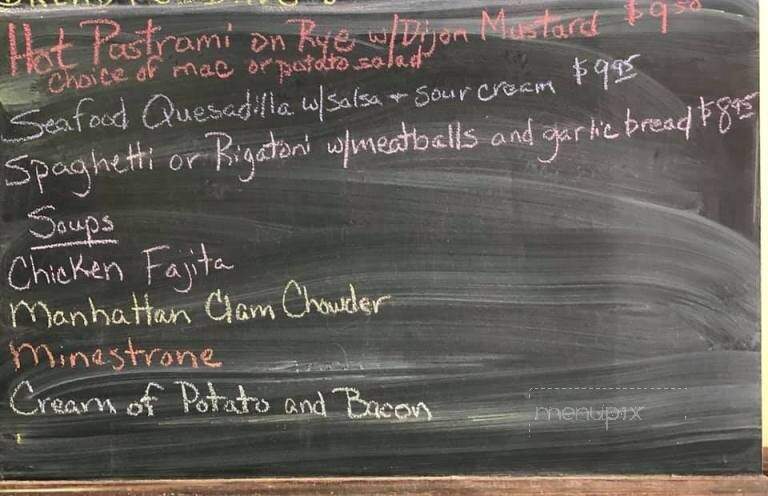 Hot Pastrami on Rye w/Dijon Mustard $9.50
choice of mac or potato salad
Seafood Quesadilla w/salsa + sour cream $9.95
Spaghetti or Rigatoni w/meatballs and garlic bread $8.95
Soups
Chicken Fajita
Manhattan Clam Chowder
Minestrone
Cream of Potato and Bacon
menupix